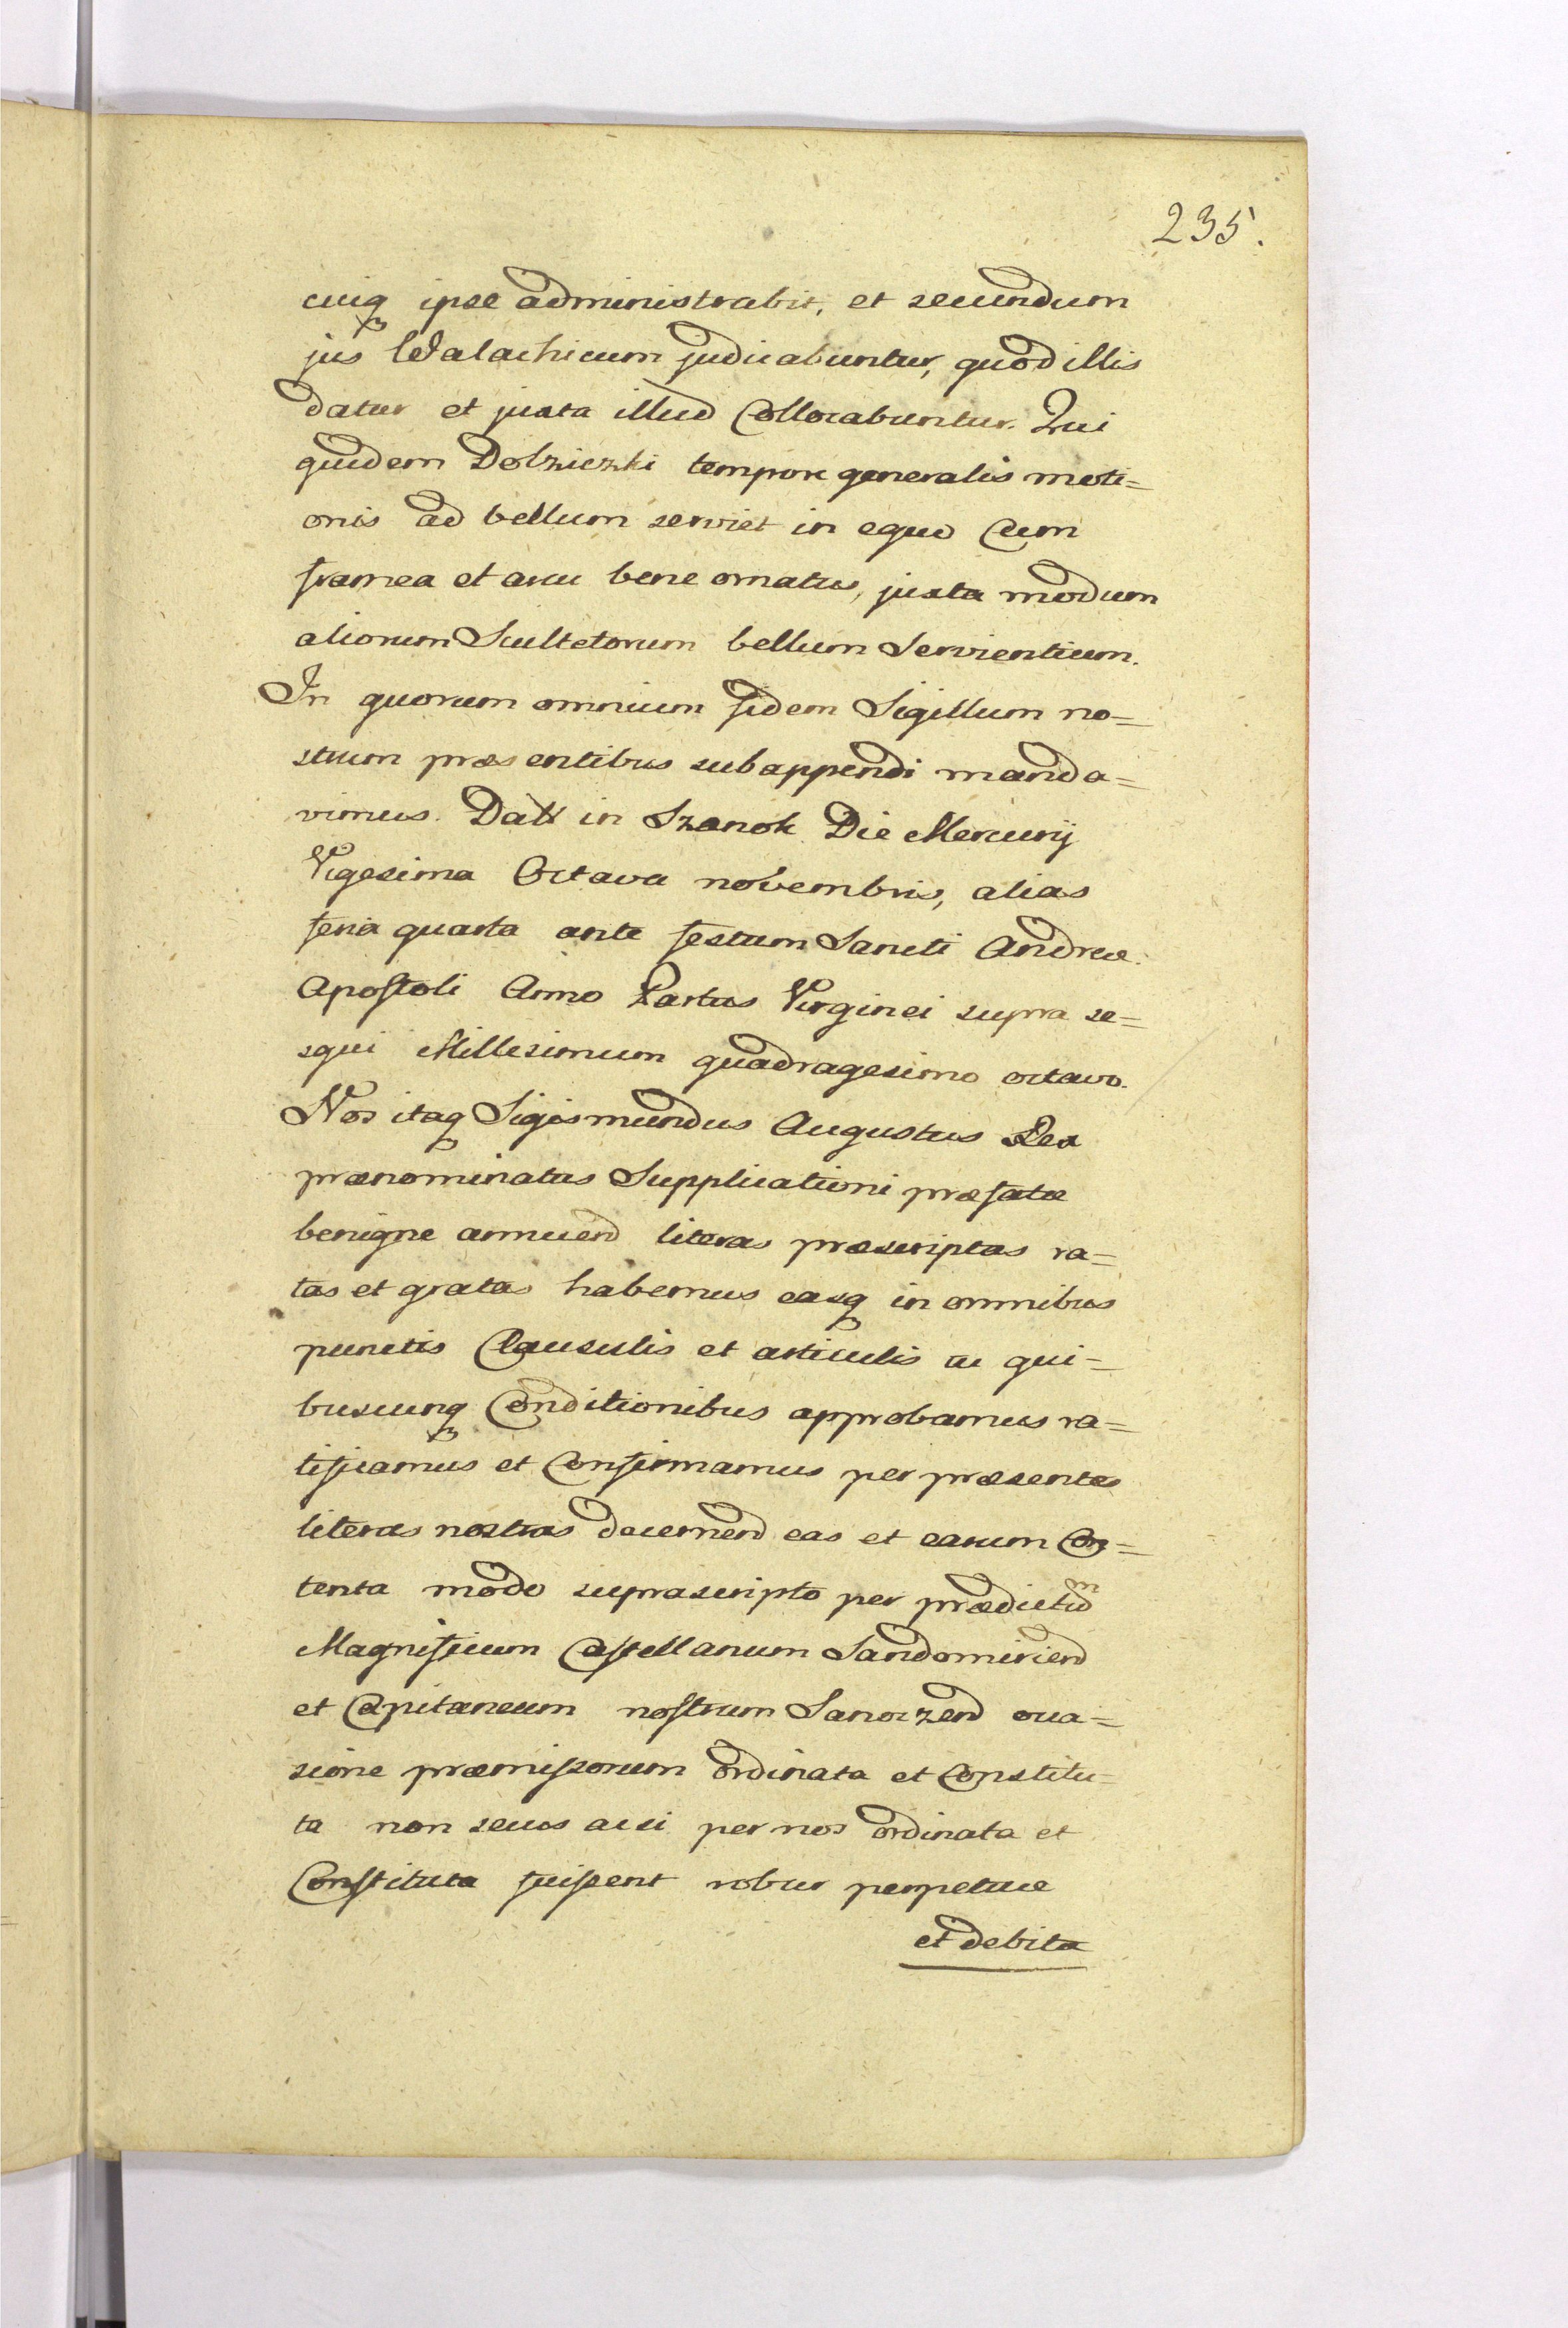 235.
cuiq ipse administrabit, et secundum
jus Walachicum judicabuntur, quod illis
datur et juxta illud Collocabuntur. Qui
quidem Dolziczki tempore generalis moti=
onis ad bellum serviet in equo Cum
framea et arcu bene ornatus, juxta modum
aliorum Scultetorum bellum Servientium.
In quorum omnium fidem Sigillum no=
strum præsentibus subappendi manda=
vimus. Datt in Szanok Die Mercurij
Vigesima Octava novembris, alias
feria quarta ante festum Sancti Andreæ
Apostoli Anno Partus Virginei supra se=
squi Millesimum quadragesimo octavo.
Nos itaq Sigismundus Augustus Rex
prænominatus Supplicationi præfatæ
benigne annuend literas præscriptas ra=
tas et gratas habemus easq in omnibus
punctis Clausulis et articulis ac qui=
buscunq Conditionibus approbamus ra=
tificamus et Confirmamus per præsentes
literas nostras decernend eas et earum Con=
tenta modo suprascripto per prædictum
Magnificum Castellanum Sandomiriend
et Capitaneum nostrum Sanoczend occa=
sione præmissorum ordinata et Constitu=
ta non secus acsi per nos ordinata et
Constituta fuissent robur perpetuæ
et debita